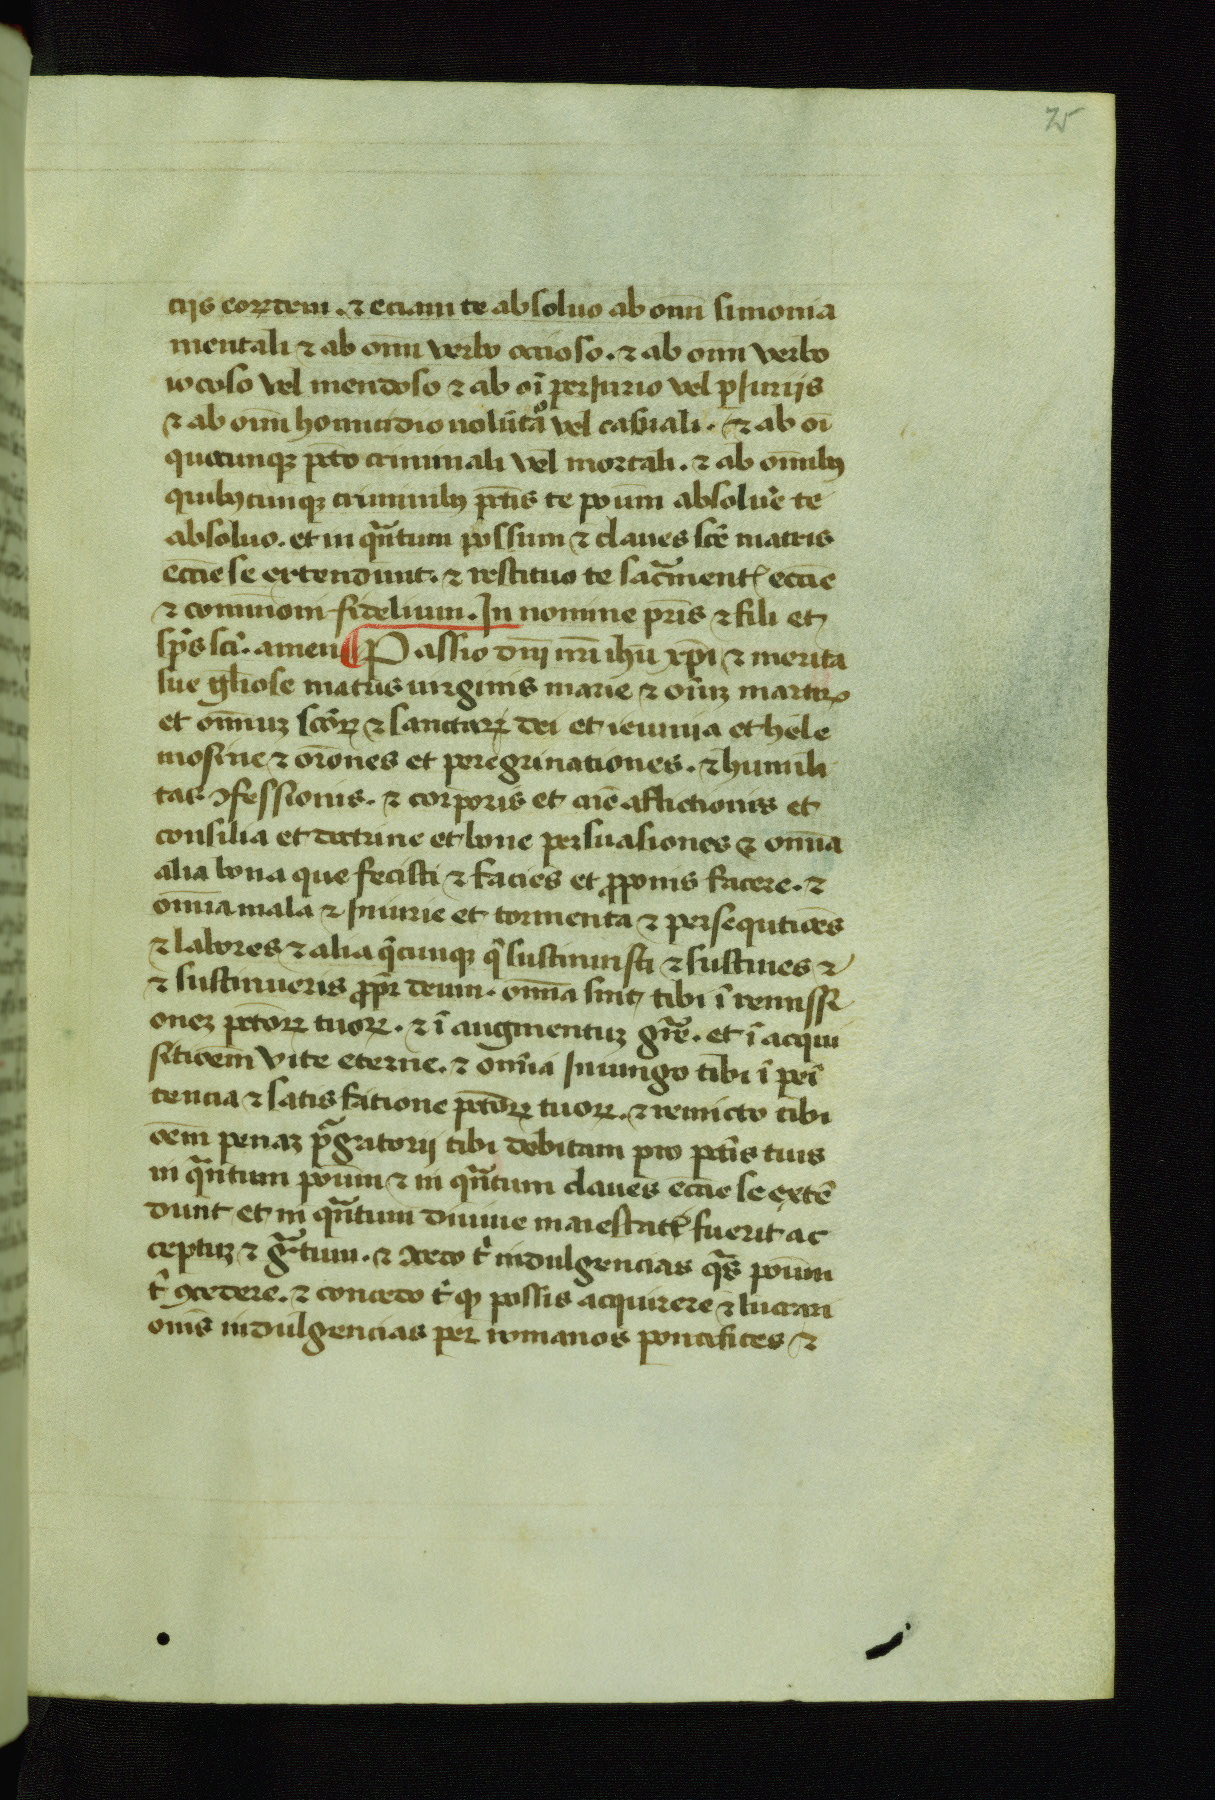 25
ciis eorꝝdem . ⁊ eciam te absoluo ab omī simonia
mentali ⁊ ab omī verbo occioso . ⁊ ab omī verbo
iocoso vel mendoso ⁊ ab oī periurio vel ꝑiuriis
⁊ ab omī homicidio nolūtao vel casuali . ⁊ ab oī
quocunqꝫ pcto criminali vel mortali . ⁊ ab omibꝫ
quibꝫcunqꝫ criminibꝫ pctis te poūm absoluē te
absoluo . et in qntum possum ⁊ claues sce matris
eccie se extendunt . ⁊ restituo te sacment eccie
⁊ comūioni fidelium . In nomine pris ⁊ fili et
sps sci . amen ¶ Passio dnī nrī ihū xpi ⁊ merita
sue gliose matris uirginis marie ⁊ oiūꝫ martirꝝ
et omiuꝫ scoꝝ ⁊ sanctarꝝ dei et ieiunia et hele
mosine ⁊ orōnes et peregrinationes . ⁊ humili
tas ꝯfessionis . ⁊ corporis et aīe aflictionis et
consilia et doctrine et bone persuasiones ⁊ omia
alia bona que fecisti ⁊ facies et ꝓponis facere . ⁊
omia mala ⁊ iniurie et tormenta ⁊ persequtiōes
⁊ labores ⁊ alia qcunqꝫ q sustinuisti ⁊ sustines ⁊
⁊ sustinueris ꝓpr deum . omia sint tibi ī remissi
oneꝫ pctoꝝ tuorꝝ . ⁊ ī augmentuꝫ grē . et ī acqui
sitiōem vite eterne . ⁊ omia Iniungo tibi ī peni
tencia ⁊ satisfatione pctoꝝ tuorꝝ . ⁊ remicto tibi
oēm penaꝫ pgratorii tibi debitam pro pctis tuis
in qntum poūm ⁊ in qntum claues eccie se extē
dunt et in qntum diuine maiestati fuerit ac
ceptuꝫ ⁊ gtum . ⁊ ꝯcedo t indulgencias qs poūm
t ꝯcedere . ⁊ concedo t ꝙ possis acquirere ⁊ lucrari
omīs indulgencias per romanos pontifices ⁊